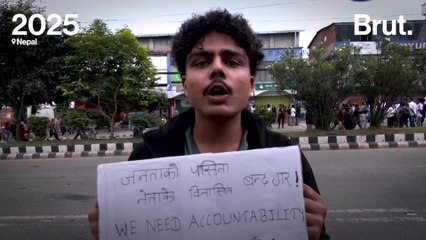 2025
Nepal
Brut.
जनताको पसिना
नेताको विलासिता बन्द गर!
WE NEED ACCOUNTABILITY